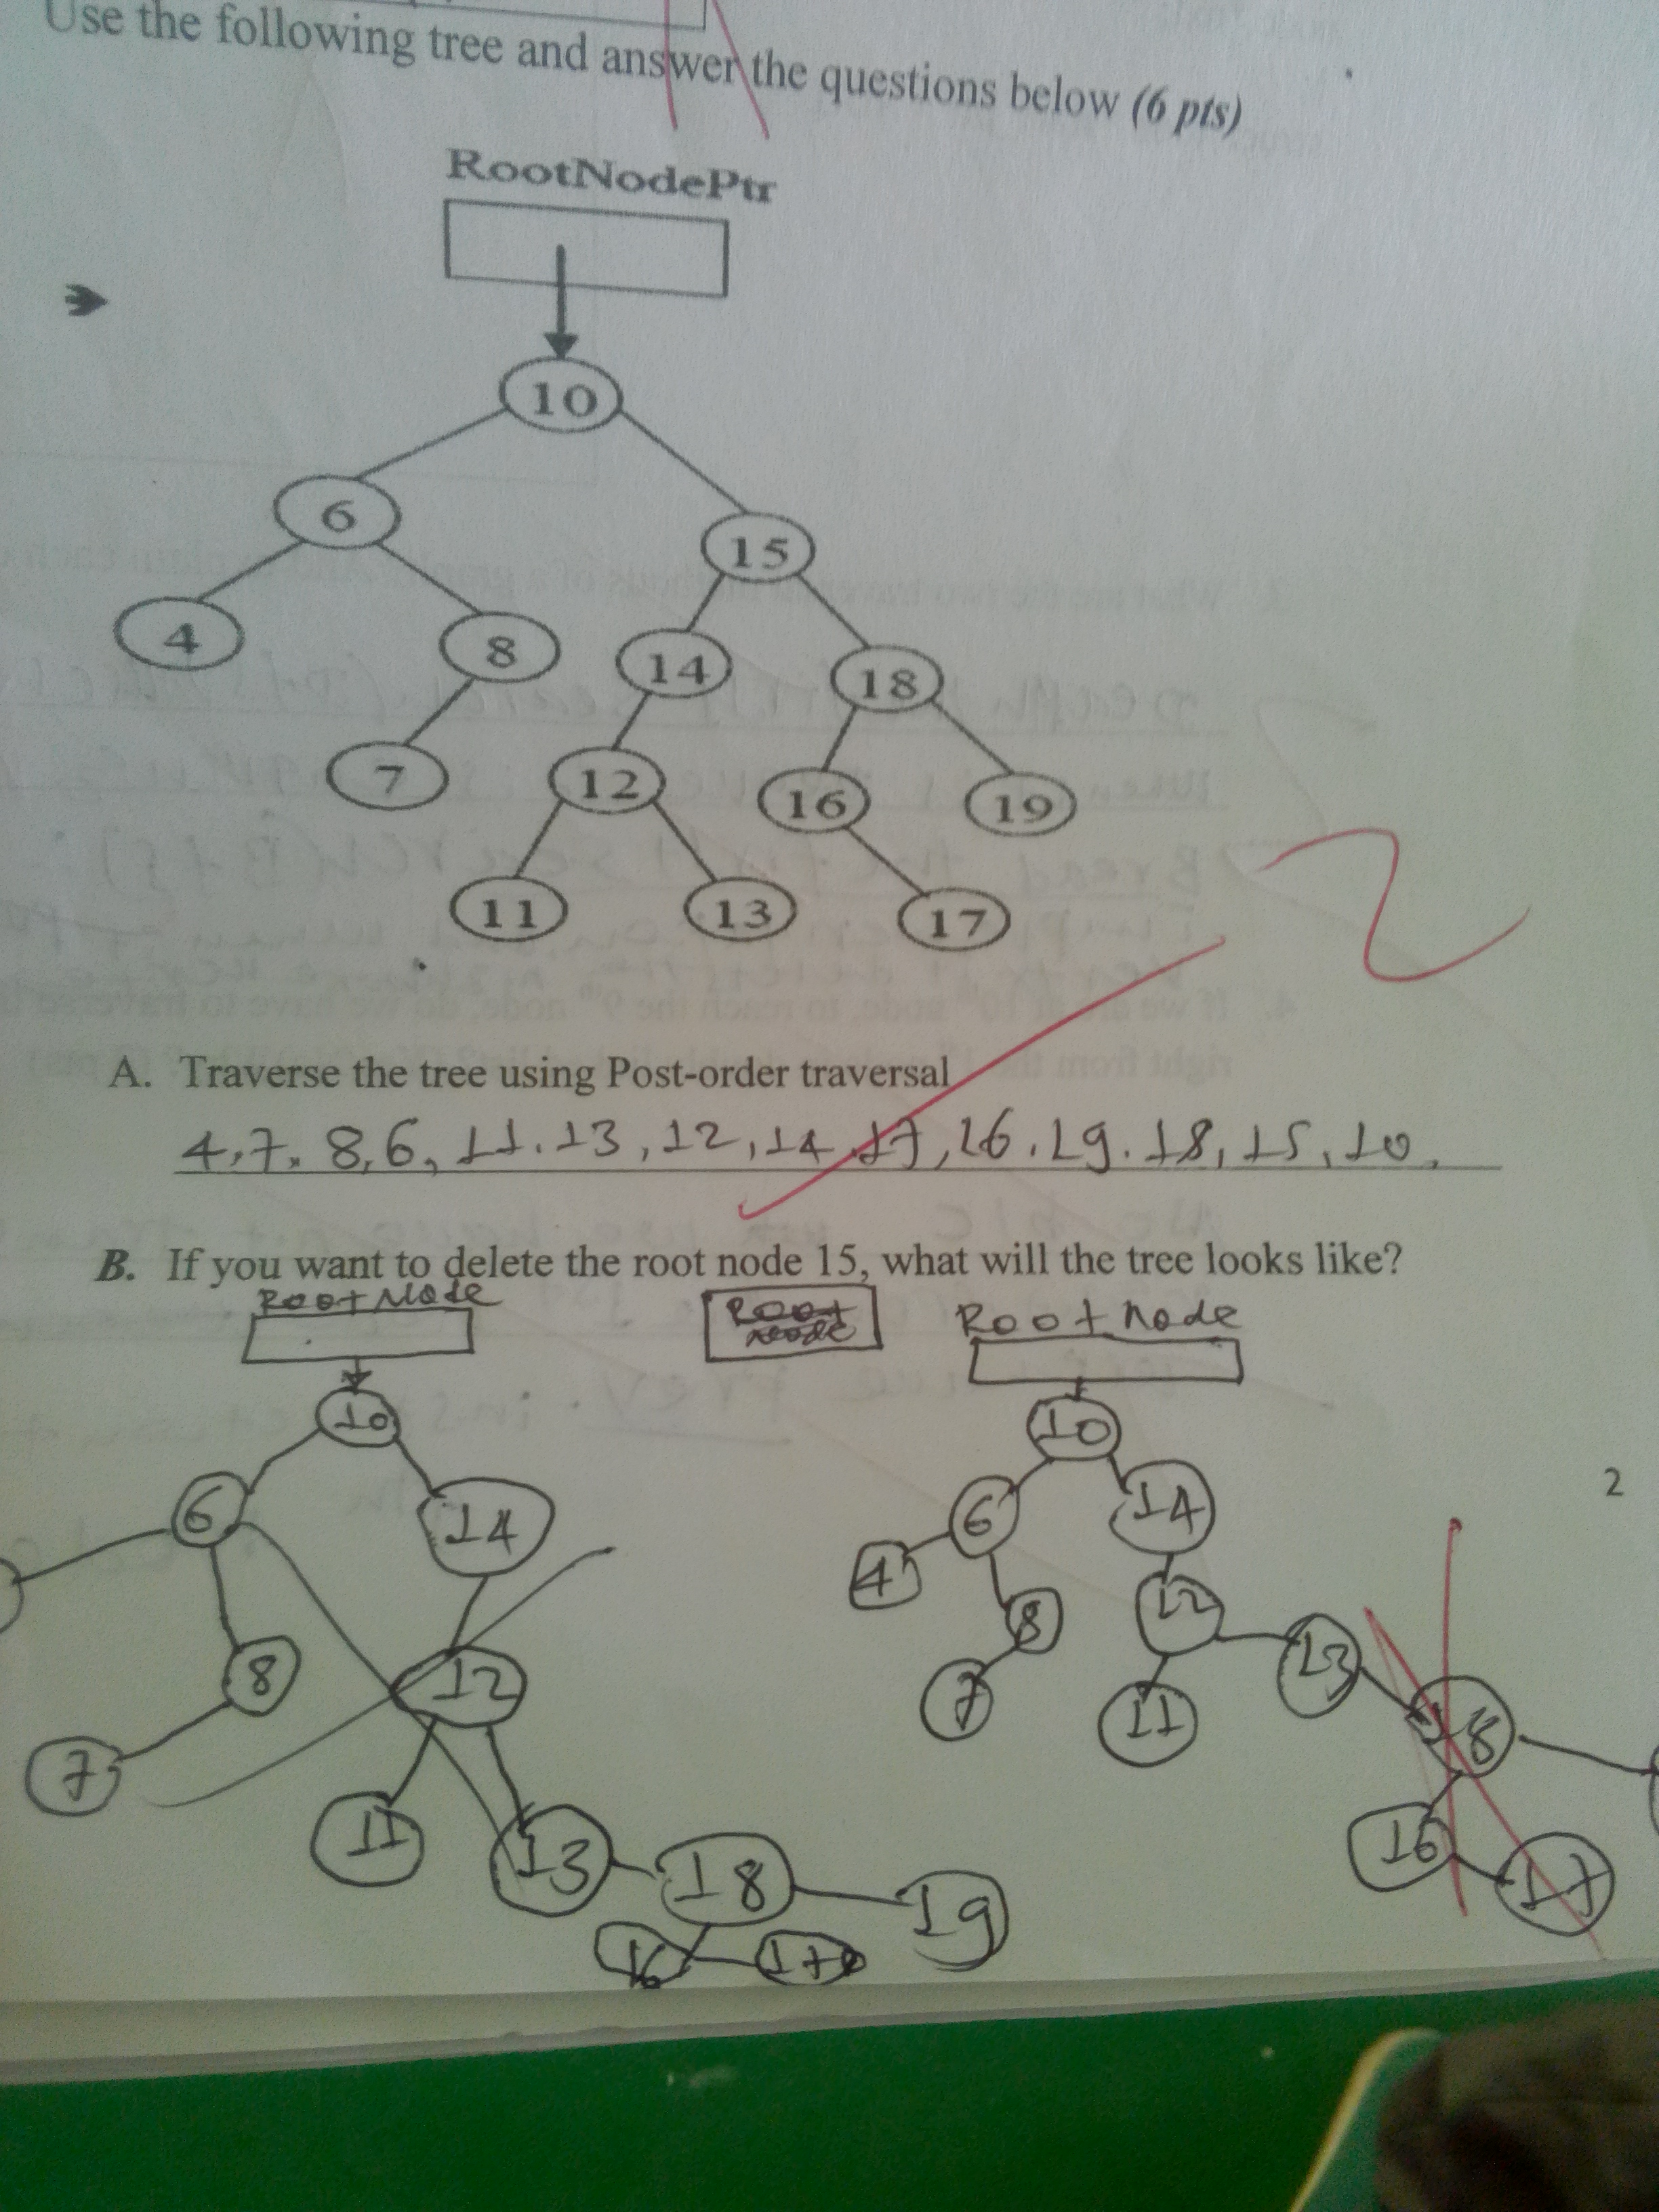 Use the following tree and answer the questions below (6 pts)
RootNodePtr
10
6
15
4
8
14
18
7
12
16
19
11
13
17
A. Traverse the tree using Post-order traversal
4,7, 8,6, 11.13,12,14,17,16,19.18,15,10.
B. If you want to delete the root node 15, what will the tree looks like?
Root Node
Root node
Root node
10
6
14
8
12
7
11
13
18
19
16
10
6
14
4
8
12
13
7
11
18
16
17
2